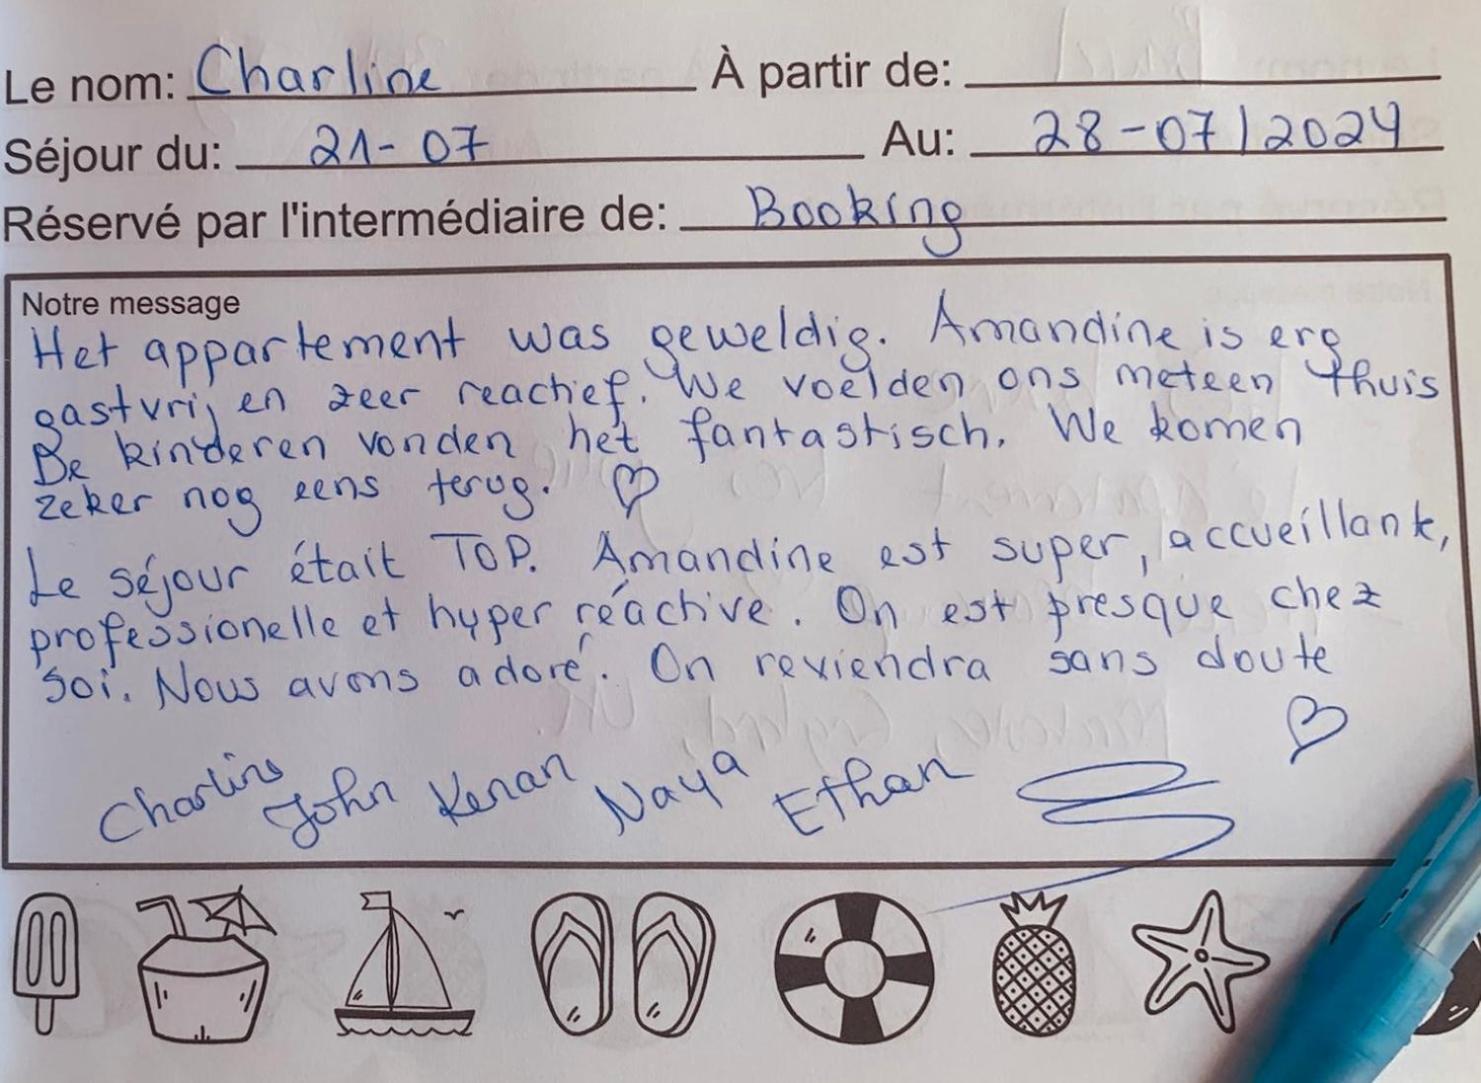 Le nom: Charline À partir de:
Séjour du: 21-07 Au: 28-07/2024
Réservé par l'intermédiaire de: Booking
Notre message
Het appartement was geweldig. Amandine is erg
gastvrij en zeer reactief. We voelden ons meteen thuis
De kinderen vonden het fantastisch. We komen
zeker nog eens terug. ♡
Le séjour était TOP. Amandine est super, accueillante,
professionelle et hyper réactive. On est presque chez
soi. Nous avons adoré. On reviendra sans doute
♡
Charline John Kenan Naya Ethan